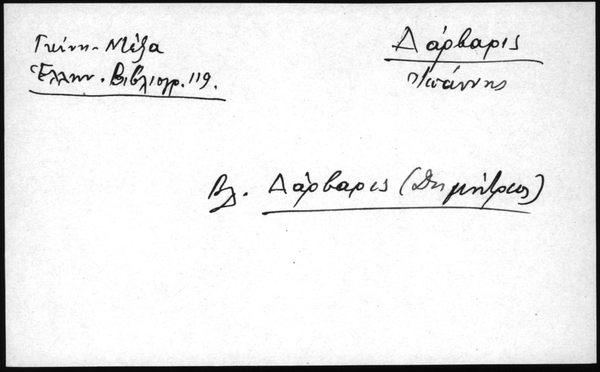 Γκίνη-Μέξα
Ἑλλην. Βιβλιογρ. 119.
Δάρβαρις
Ἰωάννης
Βλ. Δάρβαρις (Δημήτριος)